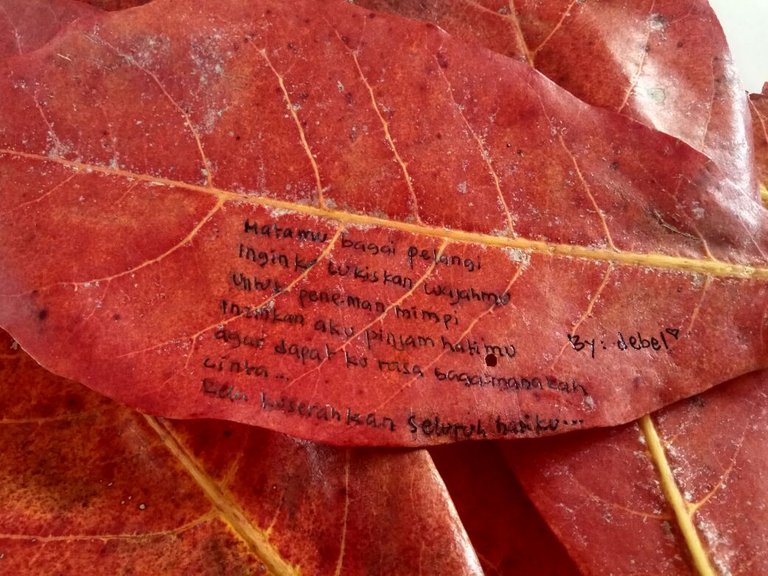 Matamu bagai pelangi
Ingin ku lukiskan wajahmu
Untuk peneman mimpi
Izinkan aku pinjam hatimu
agar dapat ku rasa bagaimanakah
cinta...
Dan kuserahkan seluruh hatiku...
By: debel